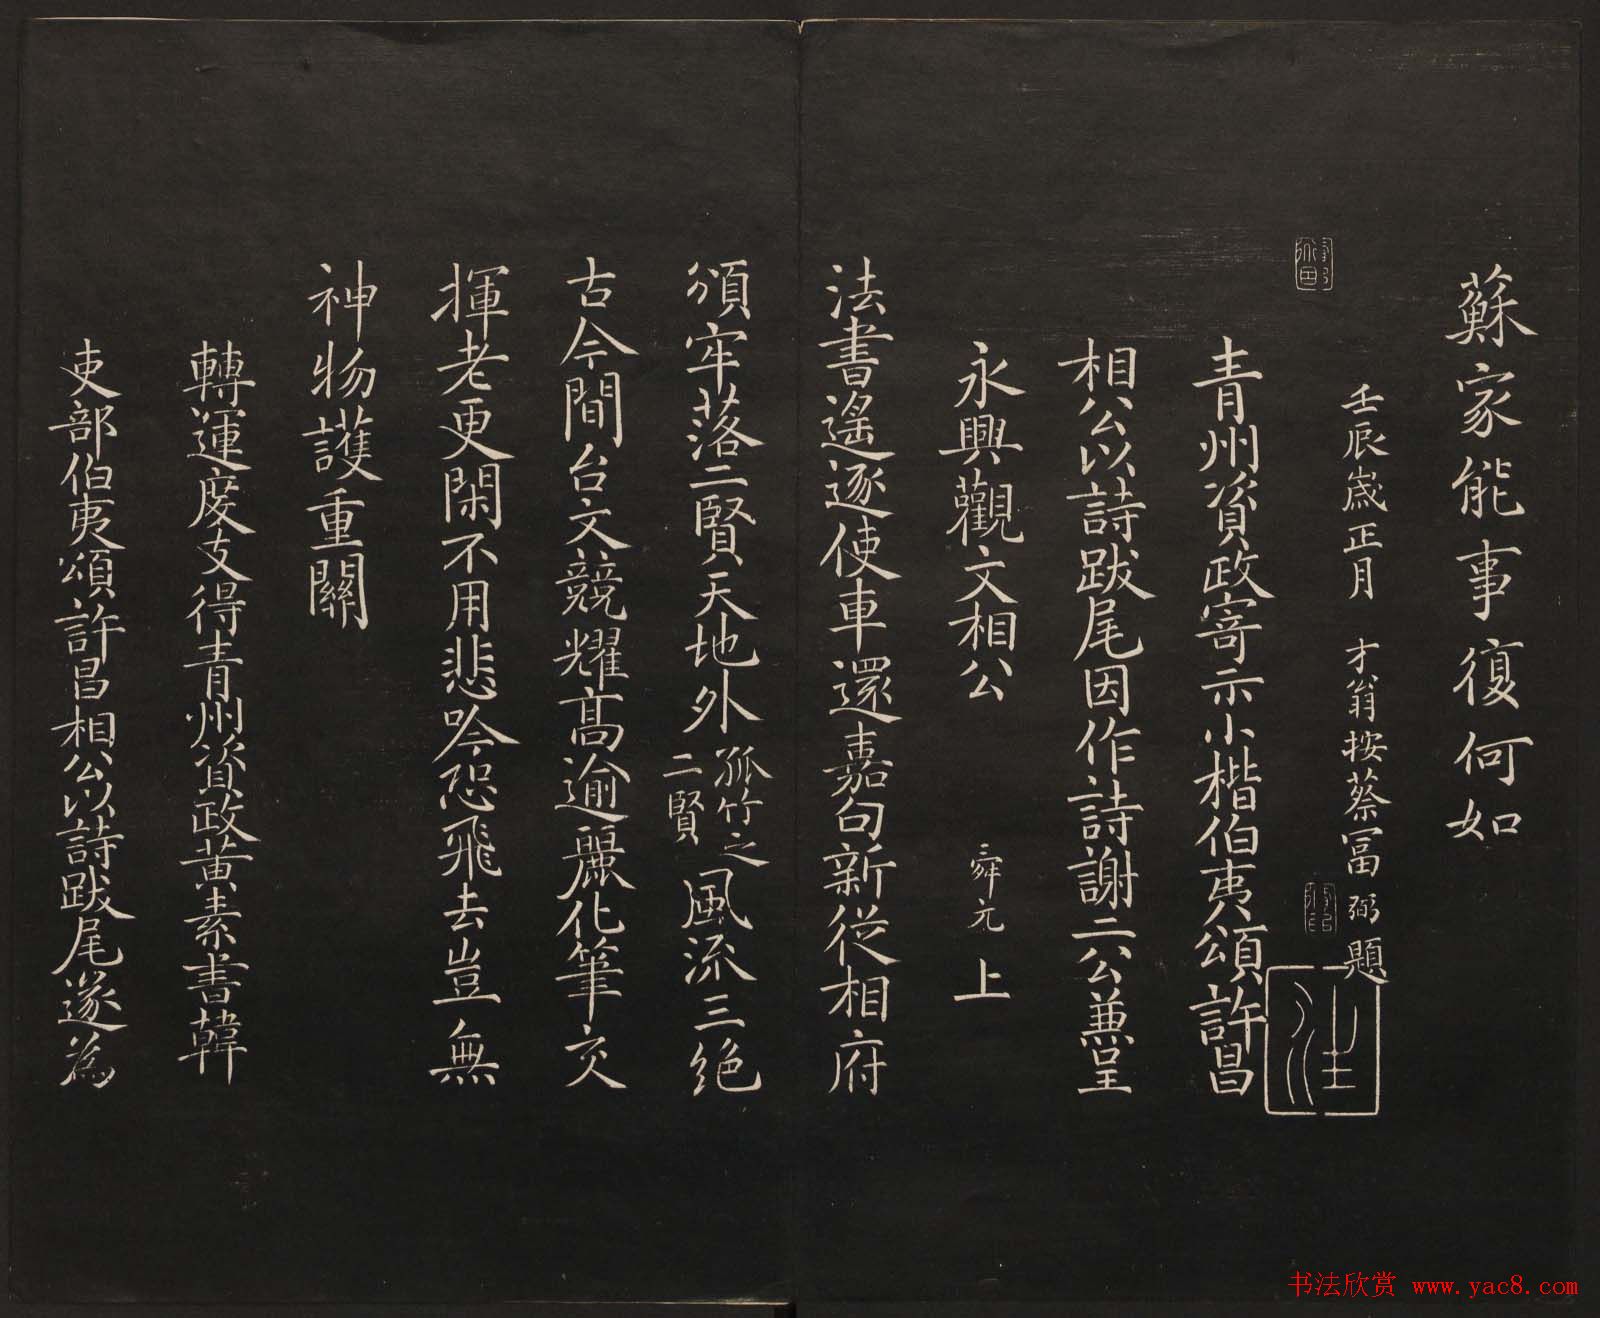 蘇家能事復何如
壬辰歲正月 才翁按蔡冨弼題
青州資政寄示小楷伯夷頌許昌
相公以詩跋尾因作詩謝二公兼呈
永興觀文相公 舜元 上
法書遙逐使車還嘉句新從相府
頒牢落二賢天地外孤竹之二賢風流三絕
古今間台文競耀高逾麗化筆交
揮老更閑不用悲吟恐飛去豈無
神物護重關
轉運度支得青州資政黃素書韓
吏部伯夷頌許昌相公以詩跋尾遂為
书法欣赏 www.yac8.com